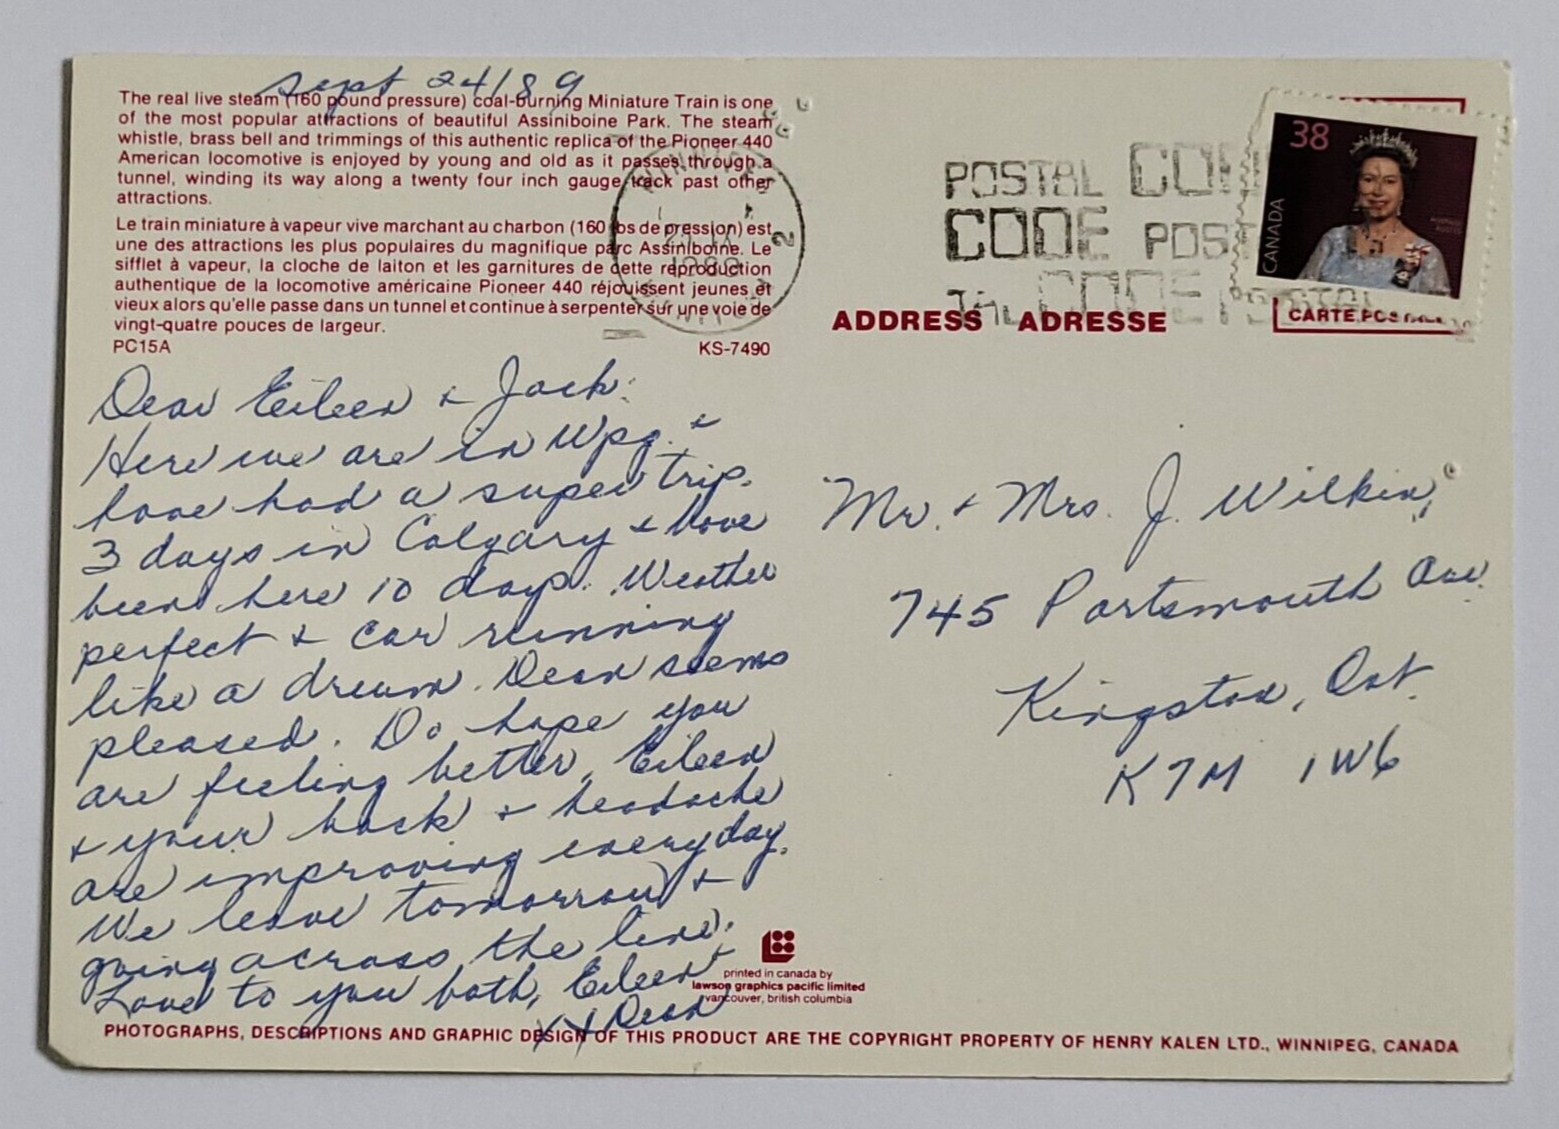 Sept 24/89
The real live steam (160 pound pressure) coal-burning Miniature Train is one
of the most popular attractions of beautiful Assiniboine Park. The steam
whistle, brass bell and trimmings of this authentic replica of the Pioneer 440
American locomotive is enjoyed by young and old as it passes through a
tunnel, winding its way along a twenty four inch gauge track past other
attractions.
Le train miniature à vapeur vive marchant au charbon (160 lbs de pression) est
une des attractions les plus populaires du magnifique parc Assiniboine. Le
sifflet à vapeur, la cloche de laiton et les garnitures de cette reproduction
authentique de la locomotive américaine Pioneer 440 réjouissent jeunes et
vieux alors qu'elle passe dans un tunnel et continue à serpenter sur une voie de
vingt-quatre pouces de largeur.
PC15A KS-7490
Dear Eileen & Jack:
Here we are in Wpg. &
have had a super trip.
3 days in Calgary & have
been here 10 days. Weather
perfect & car running
like a dream. Dean seems
pleased. Do hope you
are feeling better, Eileen
& your back & headache
are improving everyday.
We leave tomorrow &
going across the line.
Love to you both, Eileen &
xx Dean
POSTAL CODE
CODE POSTAL
38
CANADA
CARTE POSTALE
ADDRESS ADRESSE
Mr. & Mrs. J. Wilkin,
745 Portsmouth Ave.
Kingston, Ont.
K7M 1W6
printed in canada by
lawson graphics pacific limited
vancouver, british columbia
PHOTOGRAPHS, DESCRIPTIONS AND GRAPHIC DESIGN OF THIS PRODUCT ARE THE COPYRIGHT PROPERTY OF HENRY KALEN LTD., WINNIPEG, CANADA